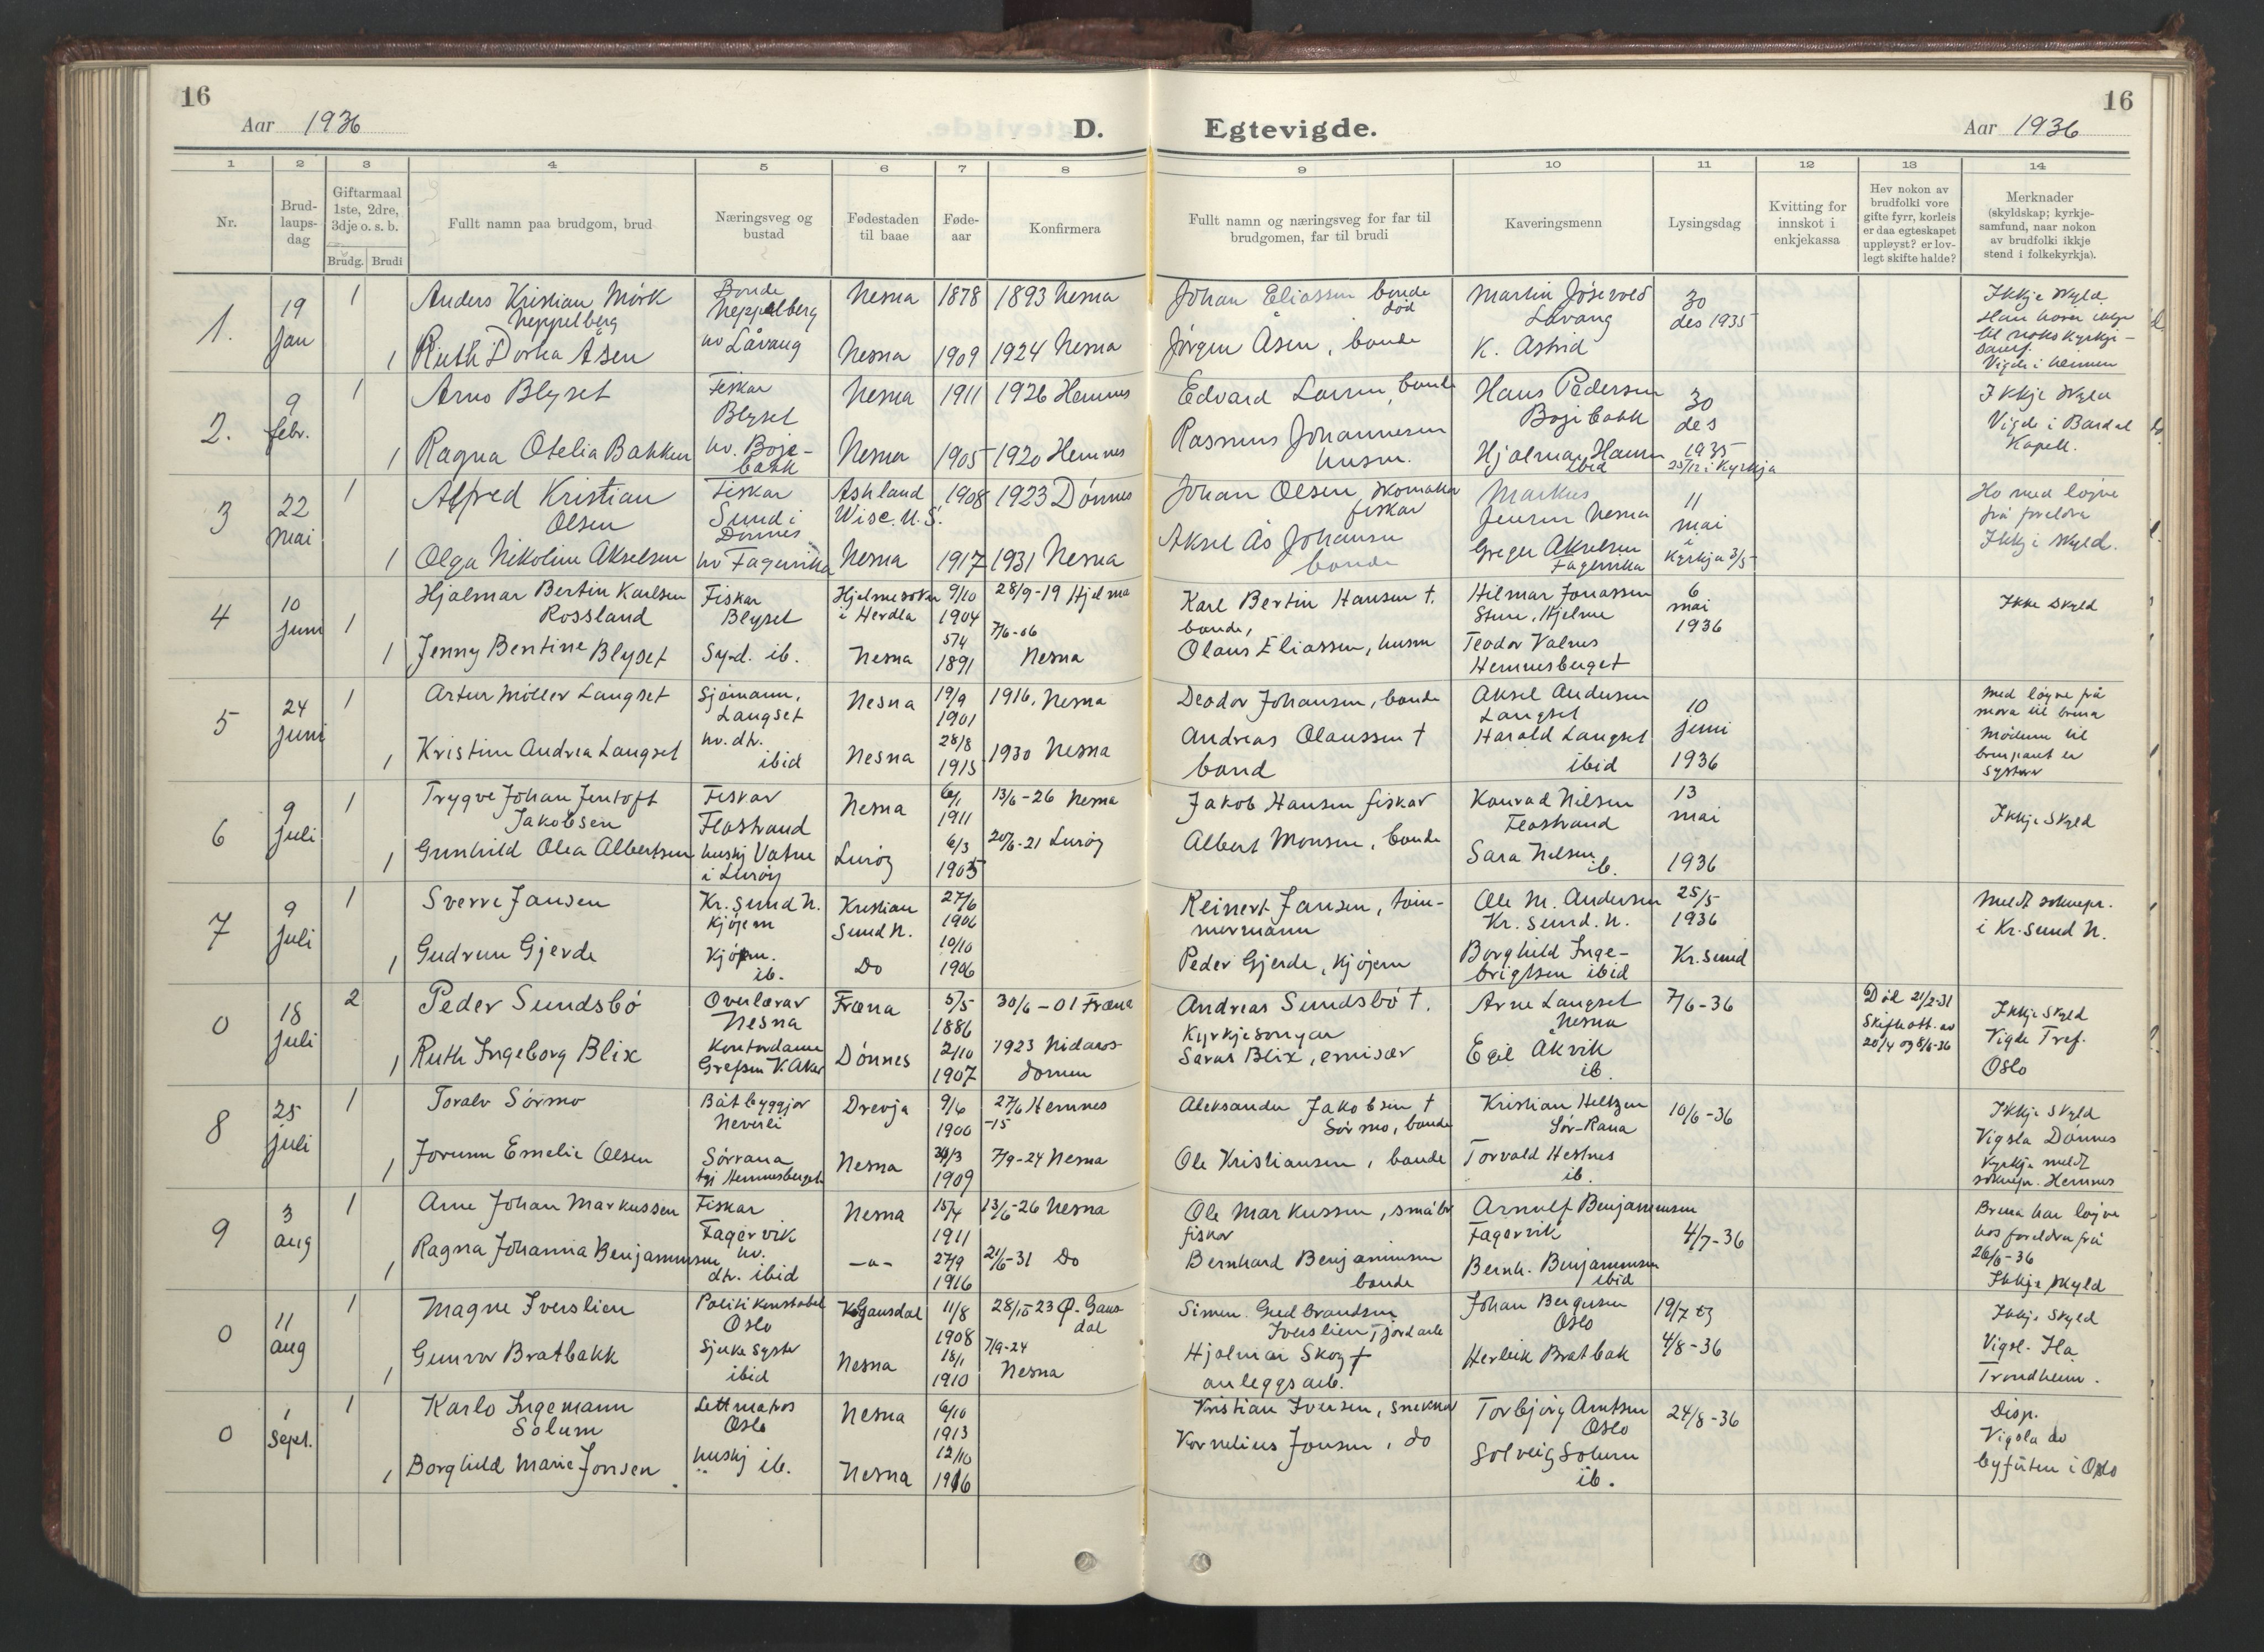 16
Aar 1936
D.
Egtevigde.
Aar 1936
16
1 2 3 4 5 6 7 8 9 10 11 12 13 14
Nr.
Brud-
laups-
dag
Giftarmaal
1ste, 2dre,
3dje o. s. b.
Brudg. Brudi
Fullt namn paa brudgom, brud
Næringsveg og
bustad
Fødestaden
til baae
Føde-
aar
Konfirmera
Fullt namn og næringsveg for far til
brudgomen, far til brudi
Kaveringsmenn
Lysingsdag
Kvitting for
innskot i
enkjekassa
Hev nokon av
brudfolki vore
gifte fyrr, korleis
er daa egteskapet
uppløyst? er lov-
legt skifte halde?
Merknader
(skyldskap; kyrkje-
samfund, naar nokon
av brudfolki ikkje
stend i folkekyrkja).
1.
19
Jan
1
Anders Kristian Mörk
Neppelberg
Bonde
Neppelberg
Nesna
1878
1893 Nesna
Johan Eliassen bonde
död
Martin
Låvang
30
des 1935
Ikkje skyld.
1
Ruth Dorha Åsen
hv Låvang
Nesna
1909
1924 Nesna
Jörgen Åsen, bonde
K. Astrid
Vigde i heimen
2.
9
febr.
1
Arno Blyset
Fiskar
Blyset
Nesna
1911
1926 Hemnes
Edvard Larsen, bonde
Hans Pedersen
Bojebakk
30
des
1935
Ikkje skyld
Vigde i Bardal
Kapell.
1
Ragna Otelia Bakken
hv. Boje-
bakk
Nesna
1905
1920 Hemnes
Rasmus Johannesen
husm.
Hjalmar Hansen
ibid
25/12 i Kyrkja
3
22
mai
1
Alfred Kristian
Olsen
Fiskar
Sund i
Dönnes
Ashland
Wisc. U.S.
1908
1923 Dönnes
Johan Olsen, skomakar
fiskar
Markus
Jensen Nesna
11
mai
i
Kyrkja 3/5
Ho med löyve
frå foreldra
Ikkje skyld.
1
Olga Nikoline Akselsen
hv Fagervika
Nesna
1917
1931 Nesna
Aksel Ås Johansen
bonde
Greger Akselsen
Fagervika
4
10
juni
1
Hjalmar Bertin Karlsen
Rossland
Fiskar
Blyset
Hjelmesokn
i Herdla
9/10
1904
28/9-19 Hjelma
Karl Bertin Hansen †.
bonde,
Hilmar Jonassen
Stene, Hjelme
6
mai
1936
Ikke skyld
1
Jenny Bentine Blyset
Syd. ib.
Nesna
5/4
1891
7/6-06
Nesna
Olaus Eliassen, husm
Teodor Valnes
Hemnesberget
5
24
juni
1
Artur Möller Langset
Sjömann,
Langset
Nesna
19/9
1901
1916, Nesna
Deodor Johansen, bonde
Aksel Andersen
Langset
10
juni
1936
Med löyve frå
mora til brura
Mödrene til
bruparet er
systrar
1
Kristine Andrea Langset
hv. dtr.
ibid
Nesna
28/8
1915
1930 Nesna
Andreas Olaussen †
bond
Harald Langset
ibid
6
9
juli
1
Trygve Johan Jentoft
Jakobsen
Fiskar
Flostrand
Nesna
6/1
1911
13/6-26 Nesna
Jakob Hansen fiskar
Konrad Nilsen
Flostrand
13
mai
1936
Ikkje skyld
1
Gunhild Olea Albertsen
hushj Vatne
i Luröy
Luröy
6/3
1905
20/6-21 Luröy
Albert Monsen, bonde
Sara Nilsen
ib.
7
9
juli
1
Sverre Jansen
Kr. sund N.
Kjöpm
Kristian
Sund N.
27/6
1906
Reinert Jansen, töm-
mermann
Ole M. Andersen
Kr. sund. N.
25/5
1936
Kr. sund
Meldt soknepr.
i Kr. sund N.
1
Gudrun Gjerde
Kjöpm.
ib.
Do
10/10
1906
Peder Gjerde, Kjöpm
Borghild Inge-
brigtsen ibid
0
18
juli
2
Peder Sundsbö
Overlærar
Nesna
Fræna
5/5
1886
30/6-01 Fræna
Andreas Sundsbö †.
Kyrkjesongar
Arne Langset
Nesna
7/6-36
Död 21/2-31
Skifteatt. av
20/4 og 8/6-36
Ikkje skyld
Vigde Tref.
Oslo
1
Ruth Ingeborg Blix
Kontordame
Grefsen V. Aker
Dönnes
2/10
1907
1923 Nidaros-
domen
Sårus Blix, emisær
Egil Åkvik
ib.
8
25
juli
1
Toralv Sörmo
Båtbyggjar
Neverli
Drevja
9/6
1900
27/6 Hemnes
-15
Aleksander Jakobsen †
Sörmo, bonde
Kristian Heltzen
Sör-Rana
10/6-36
Ikkje skyld
Vigsla Dönnes
Kyrkja meldt
soknepr. Hemnes
1
Jorunn Emelie Olsen
Sörrana
Hemnesberget
Nesna
1909
7/9-24 Nesna
Ole Kristiansen, bonde
Torvald Hestnes
ib.
9
3
aug
1
Arne Johan Markussen
Fiskar
Fagervik
Nesna
15/4
1911
13/6-26 Nesna
Ole Markussen, småbr
fiskar
Arnulf Benjaminsen
Fagervik
4/7-36
Brura har löyve
hos foreldra frå
26/6-36
Ikkje skyld
1
Ragna Johanna Benjaminsen
hv.
dtr. ibid
-"-
27/9
1916
21/6-31 Do
Bernhard Benjaminsen
bonde
Bernh. Benjaminsen
ibid
0
11
aug
1
Magne Iverslien
Politikonstabel
Oslo
Gausdal
11/8
1908
28/10 23 Ø. Gaus
dal
Simen Gudbrandsen
Iverslien, jordarb
Johan Bergersen
Oslo
19/7 og
4/8-36
Ikkje skyld
Vigsl. Ila
Trondheim.
1
Gunvor Bratbakk
Sjukesyster
ibid
Nesna
18/1
1910
7/9-24
Nesna
Hjalmar Skog †
anleggsarb.
Herleik Bratbak
0
1
sept.
1
Karlo Ingemann
Solum
Lettmatros
Oslo
Nesna
6/10
1913
Kristian Iversen, snekkar
Torbjörg Arntsen
Oslo
24/8-36
Disp.
Vigsla av
byfuten i Oslo
1
Borghild Marie Jonsen
hushj ib.
Nesna
12/10
1916
Kornelius Jonsen, do
Solveig Solum
ib.